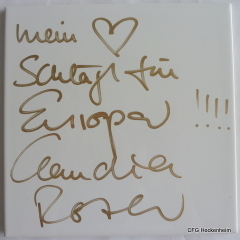 mein ♡
Schlägt für
Europa !!!!
Claudia
Roth
CFG Hockenheim